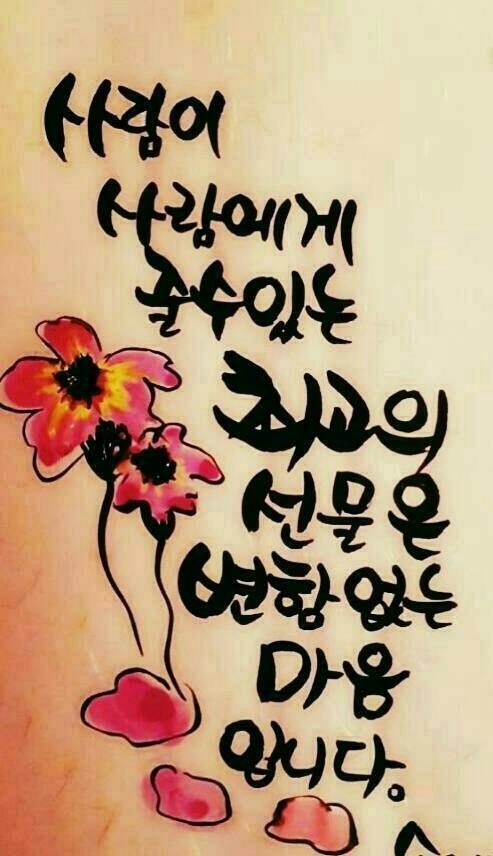 사람이
사람에게
줄수있는
최고의
선물은
변함없는
마음
입니다.